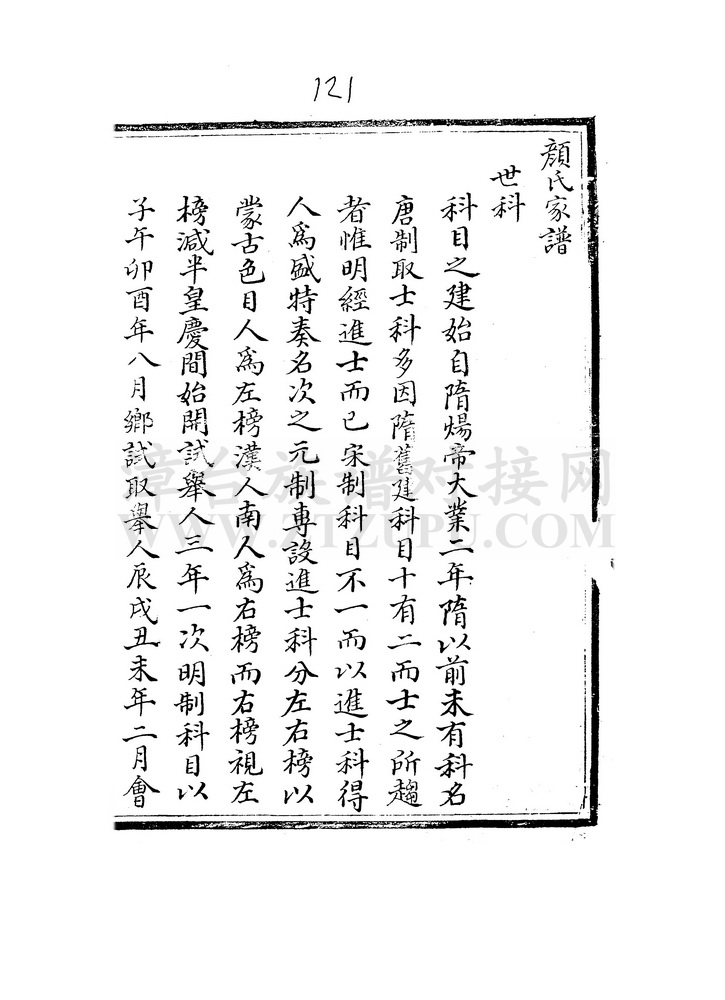 121
顏氏家譜
世科
科目之建始自隋煬帝大業二年隋以前未有科名
唐制取士科多因隋舊建科目十有二而士之所趨
者惟明經進士而已宋制科目不一而以進士科得
人為盛特奏名次之元制專設進士科分左右榜以
蒙古色目人為左榜漢人南人為右榜而右榜視左
榜減半皇慶間始開試舉人三年一次明制科目以
子午卯酉年八月鄉試取舉人辰戌丑未年二月會
漳台族谱对接网
WWW.ZTZUPU.COM